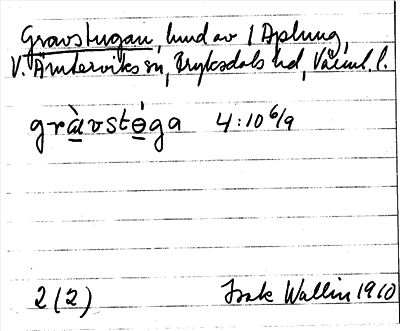 Gravstugan, hmd av 1 Aplung,
V. Ämterviks sn, Fryksdals hd, Värml. l.
gràvstǿga 4:10 6/9
2(2) Isak Wallin 1910